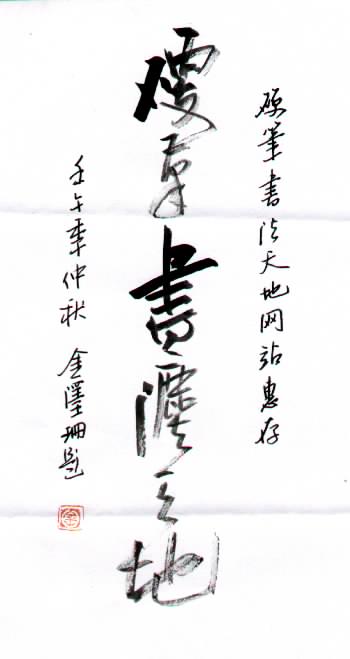 硬筆書法天地网站惠存
硬筆書灋天地
壬午秊仲秋 金珊题
金